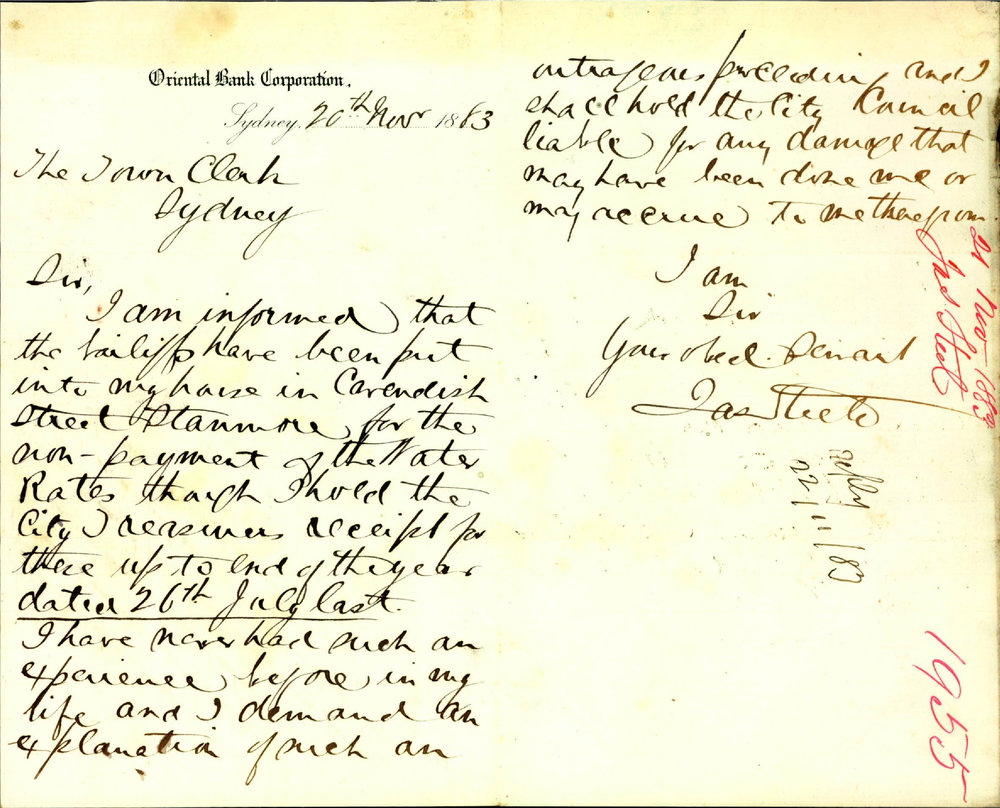 Oriental Bank Corporation.
Sydney, 20th Novr 1883
The Town Clerk
Sydney
Sir,
I am informed that
the bailiffs have been put
into my house in Cavendish
Street Stanmore, for the
non-payment of the Water
Rates though I hold the
City Treasurers receipt for
these up to end of the year
dated 26th July last.
I have never had such an
experience before in my
life and I demand an
explanation of such an
outrageous proceeding and I
shall hold the City Council
liable for any damage that
may have been done me or
may accrue to me therefrom.
I am
Sir
Your obed. Servant
Jas Steel
21 Nov 1883
Jas Steel
reply
22/11/83
1955